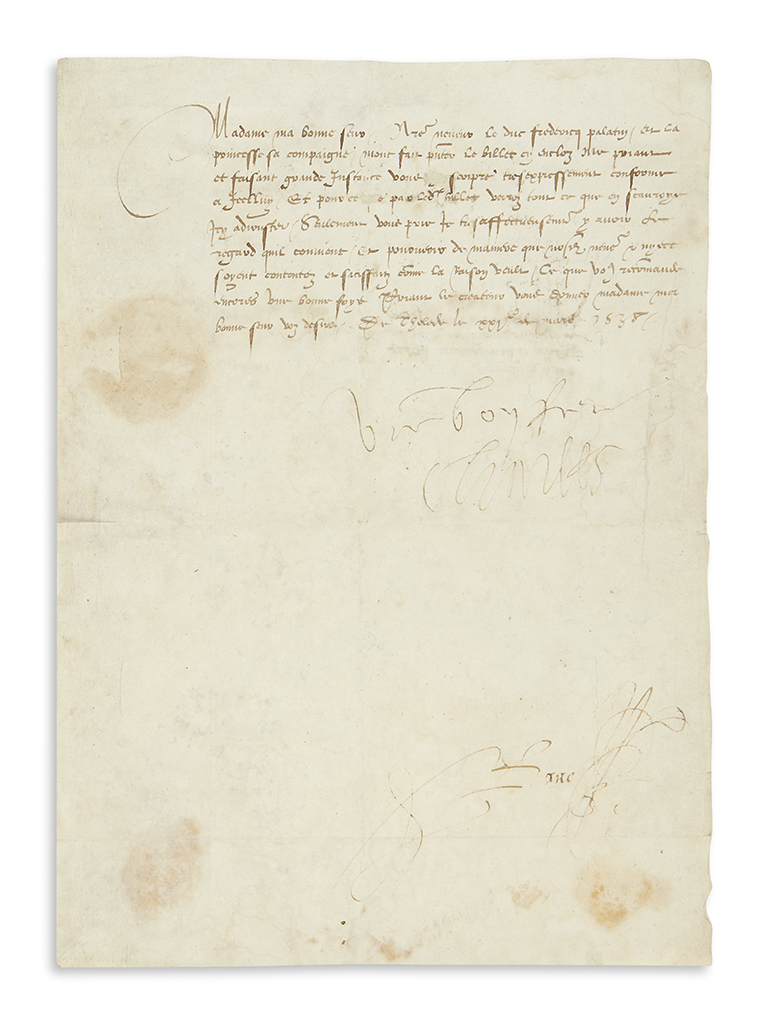 Madame ma bonne seur Nre nepveu le duc frederic palatin, Et la
princesse sa compaigne mont fait pnter le billet cy enclos me priant
et faisant grande Instance vous escripre tresexpressement conforme
a Icelluy, Et pour ce par led billet verrez tout ce que en scauroye
Icy adiouster, Seulement vous prie Je tresaffectueusemt y avoir le
regard quil convient, Et pourveoir de maniere que nepveu et nyece
soyent contentez et satisfaiz come la Raison veult, Ce que vous recommande
encores une bonne foys Priant le createur vous donner madame ma
bonne seur voz desirs, De Tholede le xxije de mars 1538,
vre bon frere
Charles